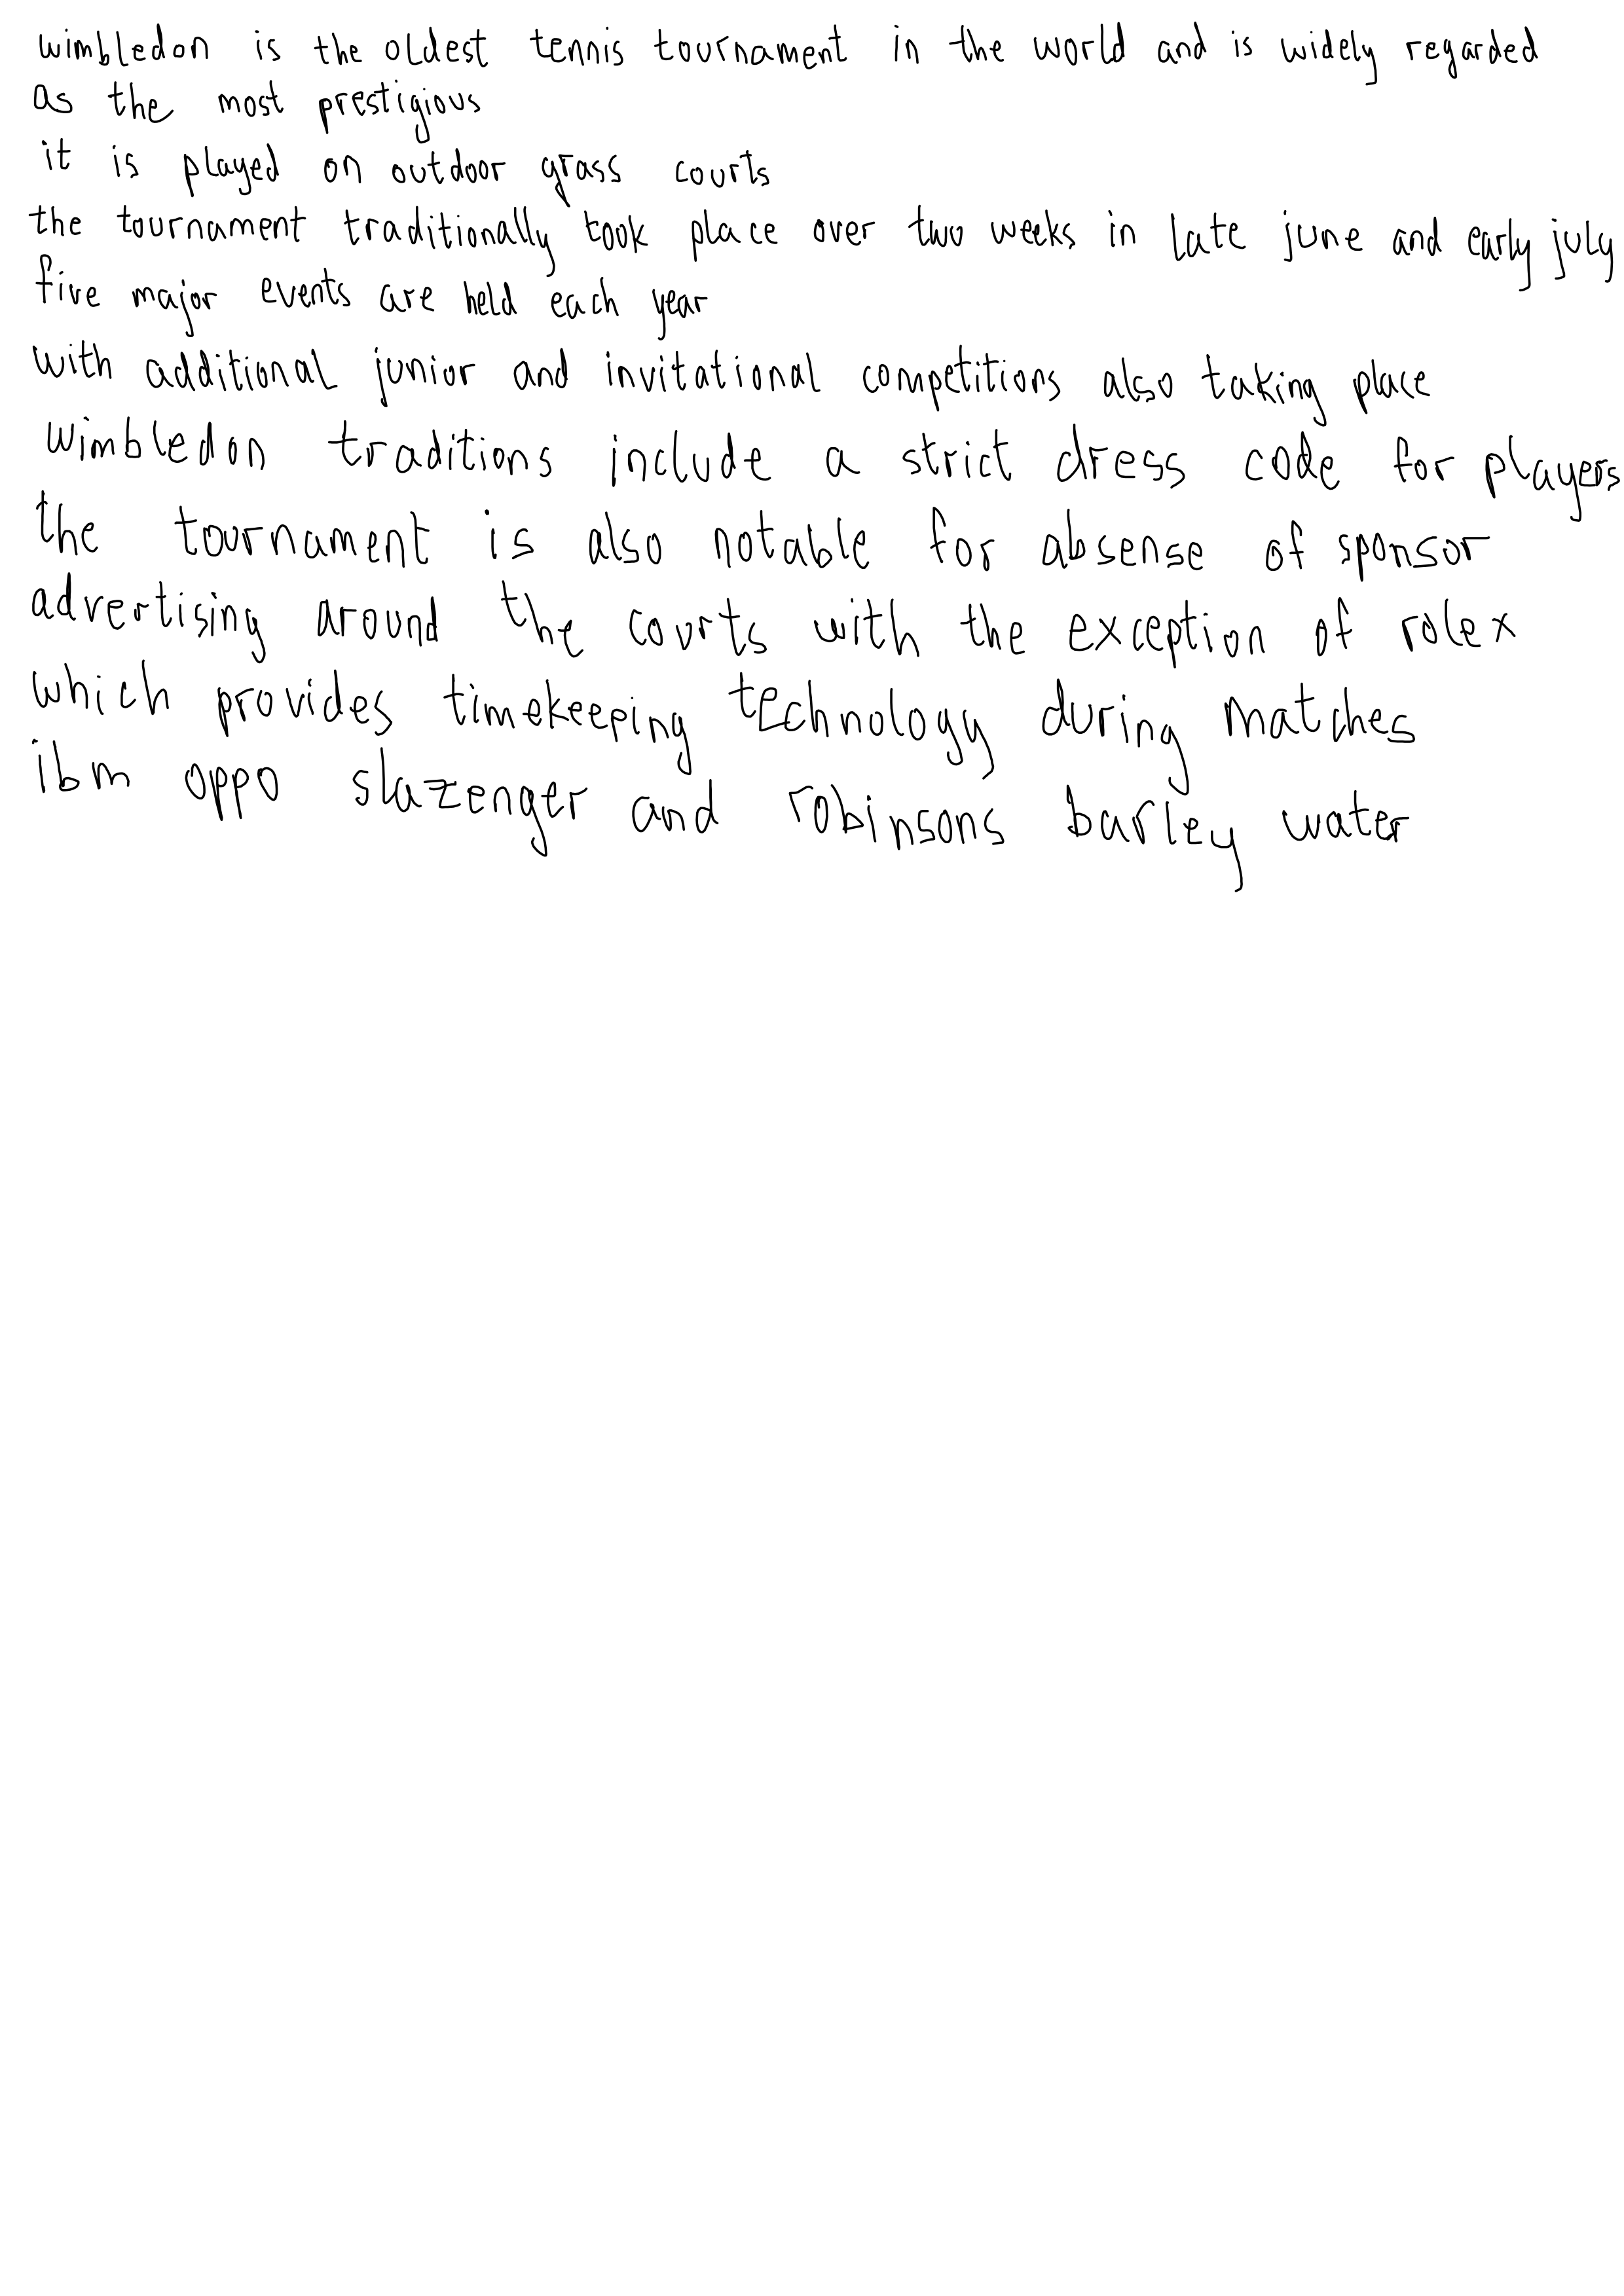 wimbledon is the oldest tennis tournament in the world and is widely regarded
as the most prestigious
it is played on outdoor grass courts
the tournament traditionally took place over two weeks in late june and early july
five major events are held each year
with additional junior and invitational competitions also taking place
wimbledon traditions include a strict dress code for players
the tournament is also notable for absense of sponsor
advertising around the courts with the exception of rolex
which provides timekeeping technology during matches
ibm oppo slazenger and robinsons barley water